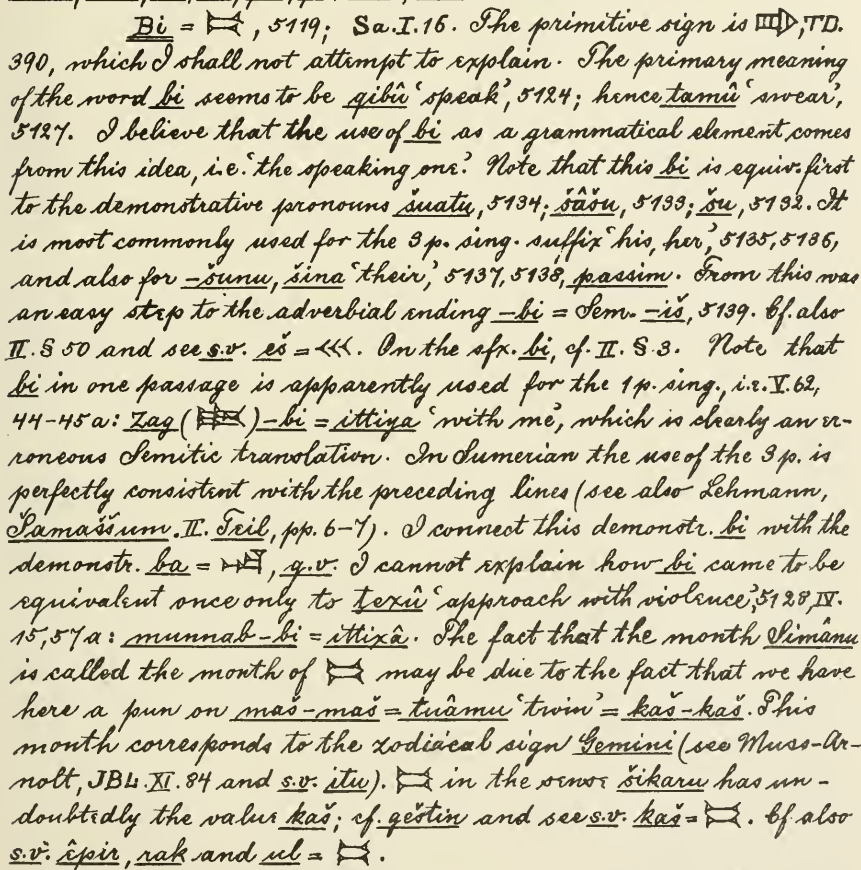 Bi = 𒁉, 5119; Sa.I.16. The primitive sign is , TD.
390, which I shall not attempt to explain. The primary meaning
of the word bi seems to be qibû ‘speak’, 5124; hence tamû ‘swear’,
5127. I believe that the use of bi as a grammatical element comes
from this idea, i.e. ‘the speaking one.’ Note that this bi is equiv. first
to the demonstrative pronouns šuatu, 5134; šâšu, 5133; šu, 5132. It
is most commonly used for the 3 p. sing. suffix ‘his, her’, 5135, 5136,
and also for -šunu, šina ‘their,’ 5137, 5138, passim. From this was
an easy step to the adverbial ending -bi = Sem. -iš, 5139. Cf. also
II. § 50 and see s.v. eš = 𒌍. On the sfx. bi, cf. II. § 3. Note that
bi in one passage is apparently used for the 1 p. sing., i.e. V. 62,
44-45a: Zag (𒍠)-bi = ittiya ‘with me’, which is clearly an er-
roneous Semitic translation. In Sumerian the use of the 3 p. is
perfectly consistent with the preceding lines (see also Lehmann,
Šamaššum. II. Teil, pp. 6-7). I connect this demonstr. bi with the
demonstr. ba = 𒁀, q.v. I cannot explain how bi came to be
equivalent once only to texû ‘approach with violence’, 5128, IV.
15, 57a: munnab-bi = ittixâ. The fact that the month Simânu
is called the month of 𒁉 may be due to the fact that we have
here a pun on maš-maš = tuâmu ‘twin’ = kaš-kaš. This
month corresponds to the zodiacal sign Gemini (see Muss-Ar-
nolt, JBL. XI. 84 and s.v. itu). 𒁉 in the sense šikaru has un-
doubtedly the value kaš; cf. geštin and see s.v. kaš = 𒁉. Cf. also
s.v. êpir, rak and ul = 𒁉.